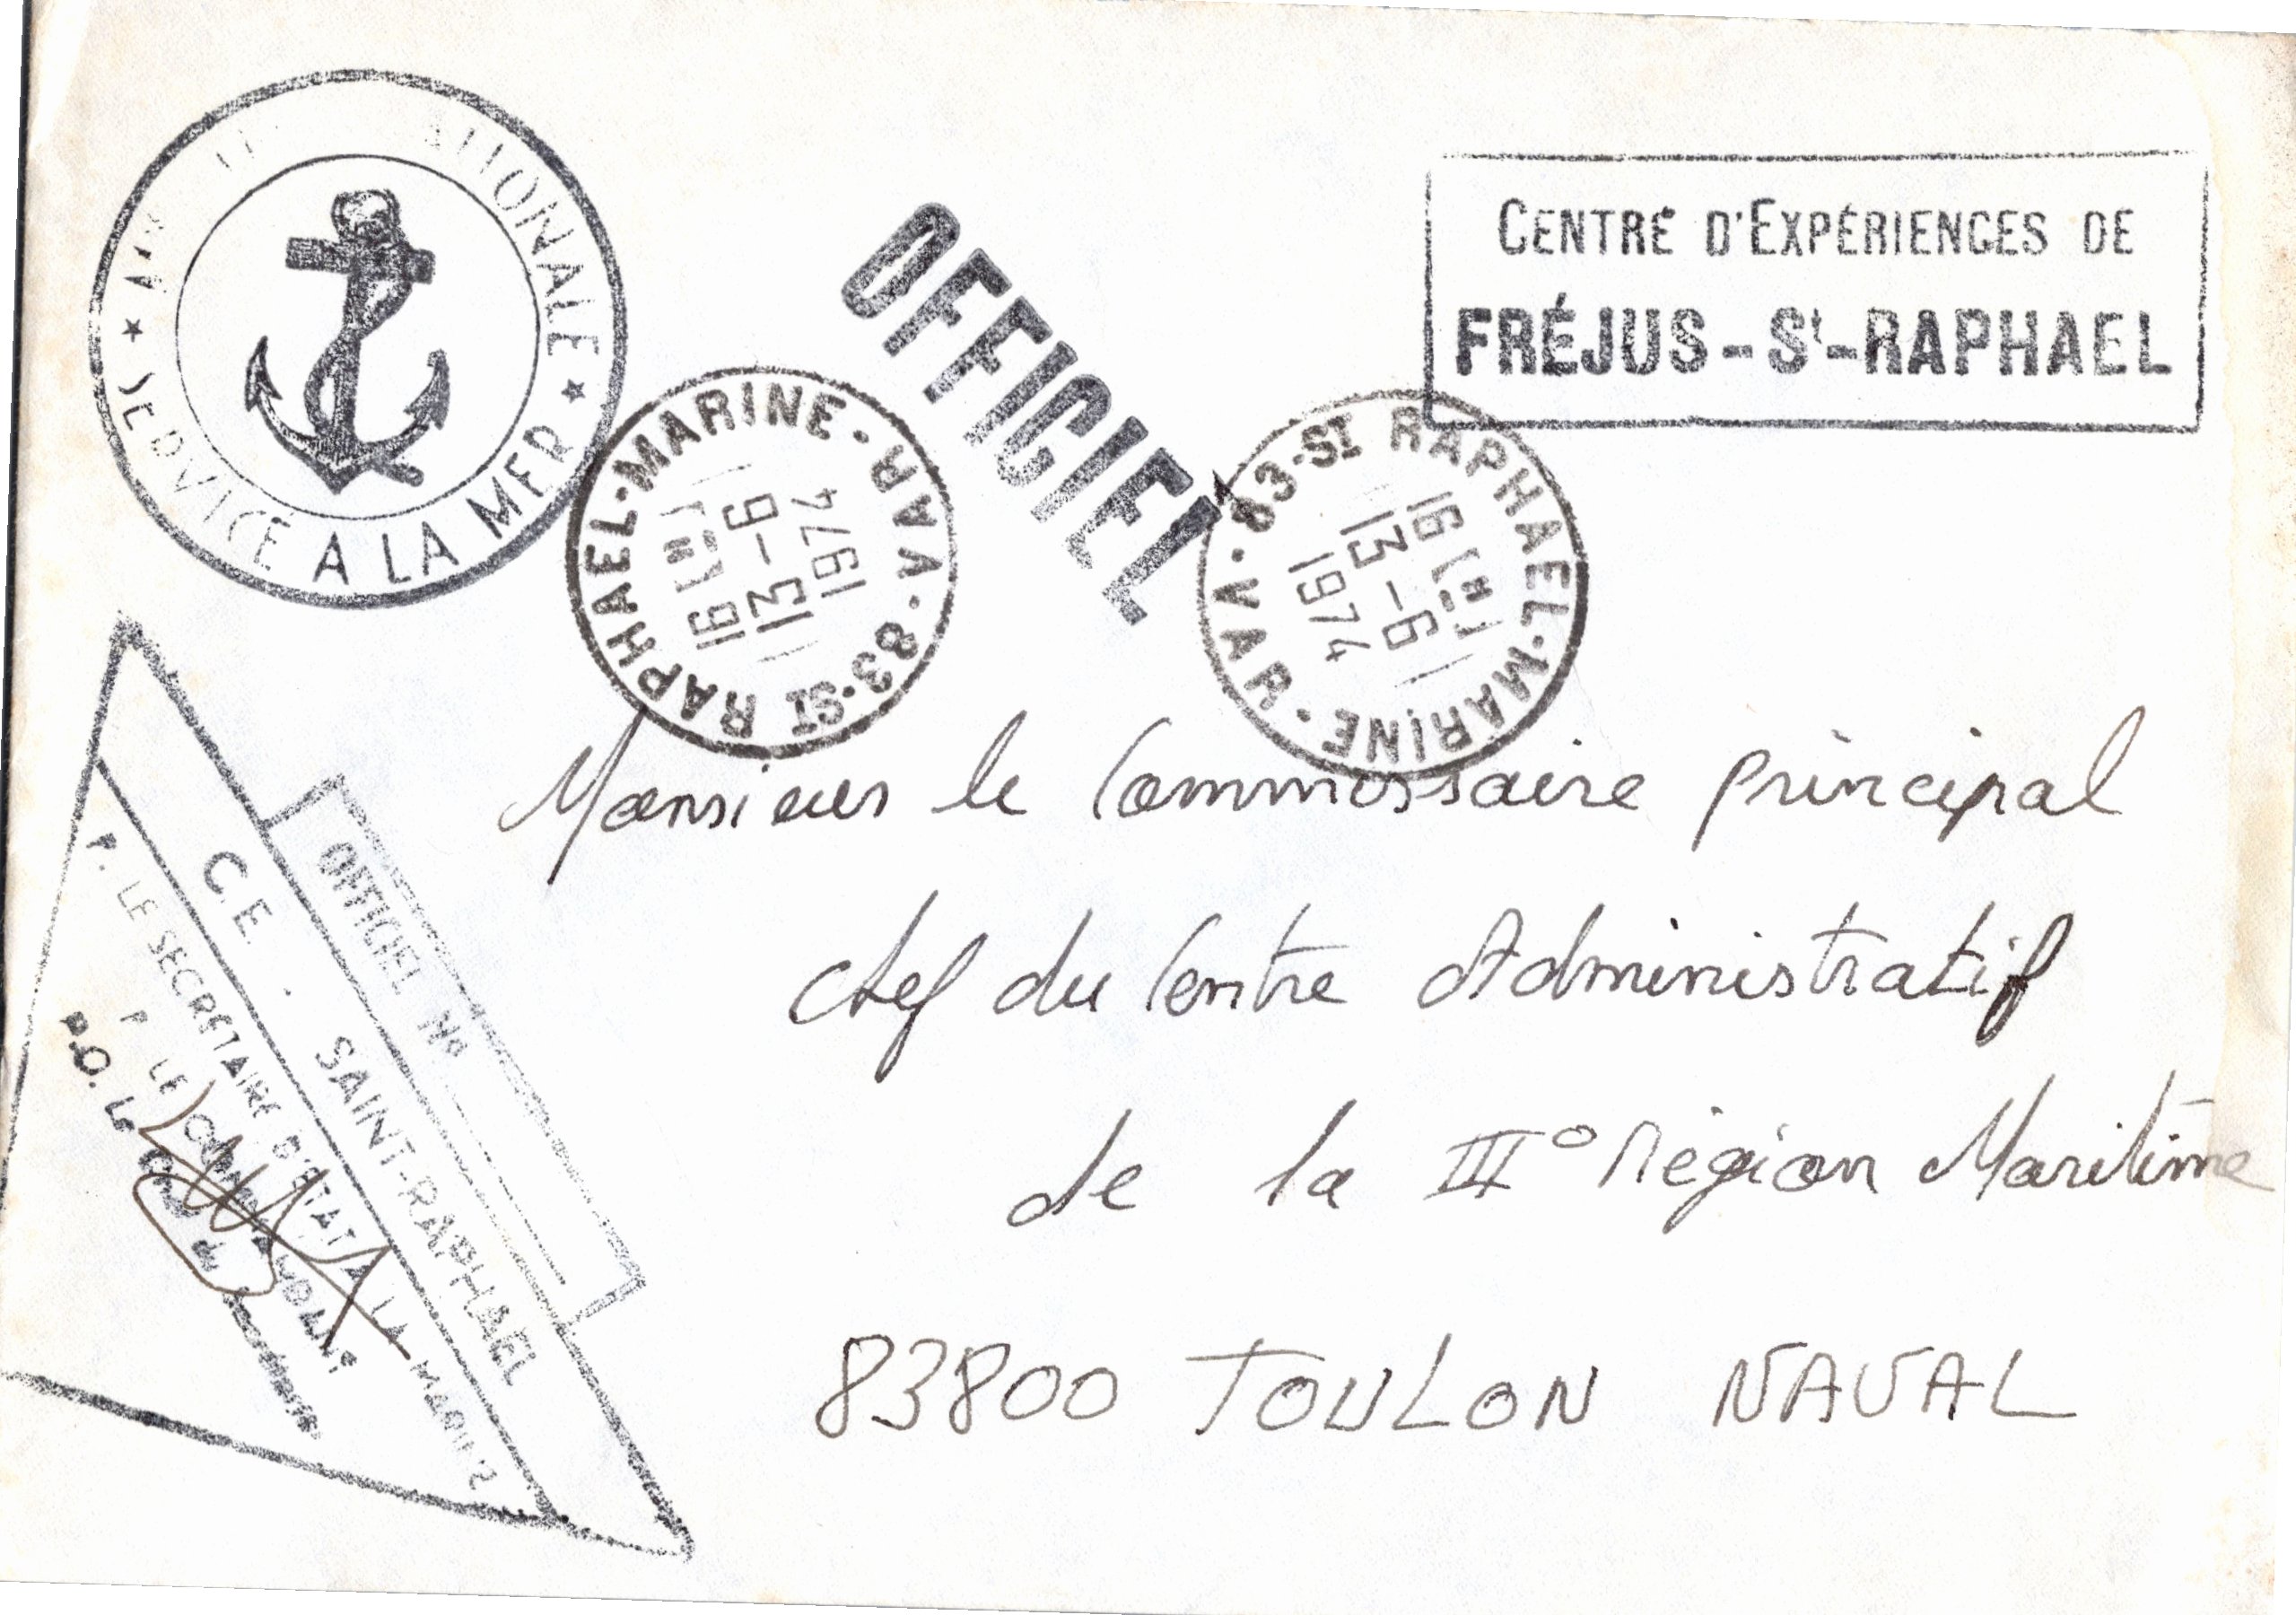 NATIONALE
★ SERVICE A LA MER ★
OFFICIEL
CENTRE D'EXPÉRIENCES DE
FRÉJUS-St-RAPHAEL
83·ST RAPHAEL·MARINE·VAR·
16H
13-6
1974
83·ST RAPHAEL·MARINE·VAR·
16H
13-6
1974
Monsieur le Commissaire principal
Chef du Centre Administratif
de la III° Région Maritime
83800 TOULON NAVAL
OFFICIEL N°
C.E. SAINT-RAPHAEL
P. LE SECRÉTAIRE D'ETAT A LA MARINE
P. LE COMMANDANT
P.O. Le